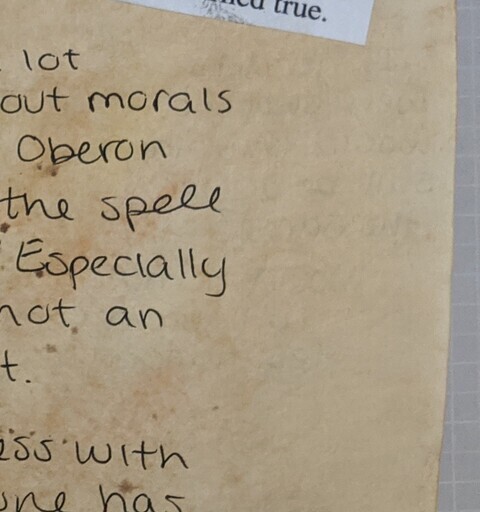 true.
lot
out morals
Oberon
the spell
Especially
not an
t.
ess with
une has